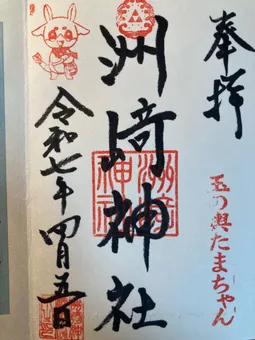 奉拝
玉の輿たまちゃん
洲﨑神社
洲崎神社
令和七年四月五日